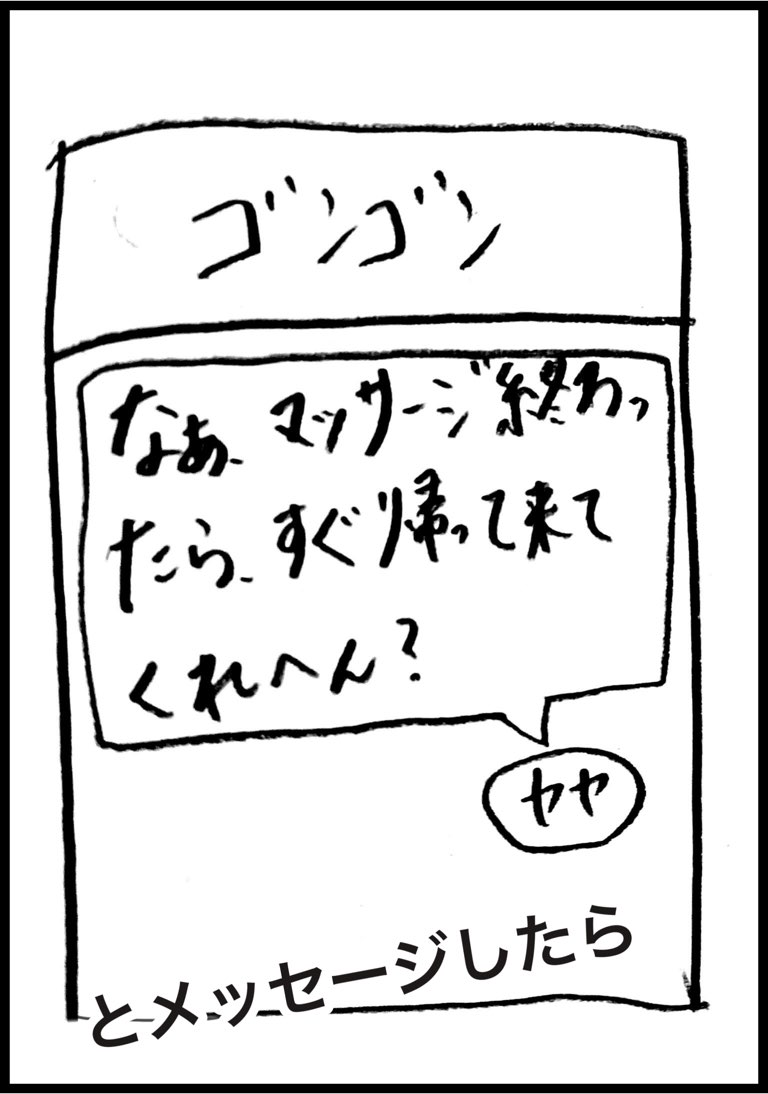 ゴンゴン
なぁ、マッサージ終わっ
たら、すぐ帰って来て
くれへん？
ヤヤ
とメッセージしたら